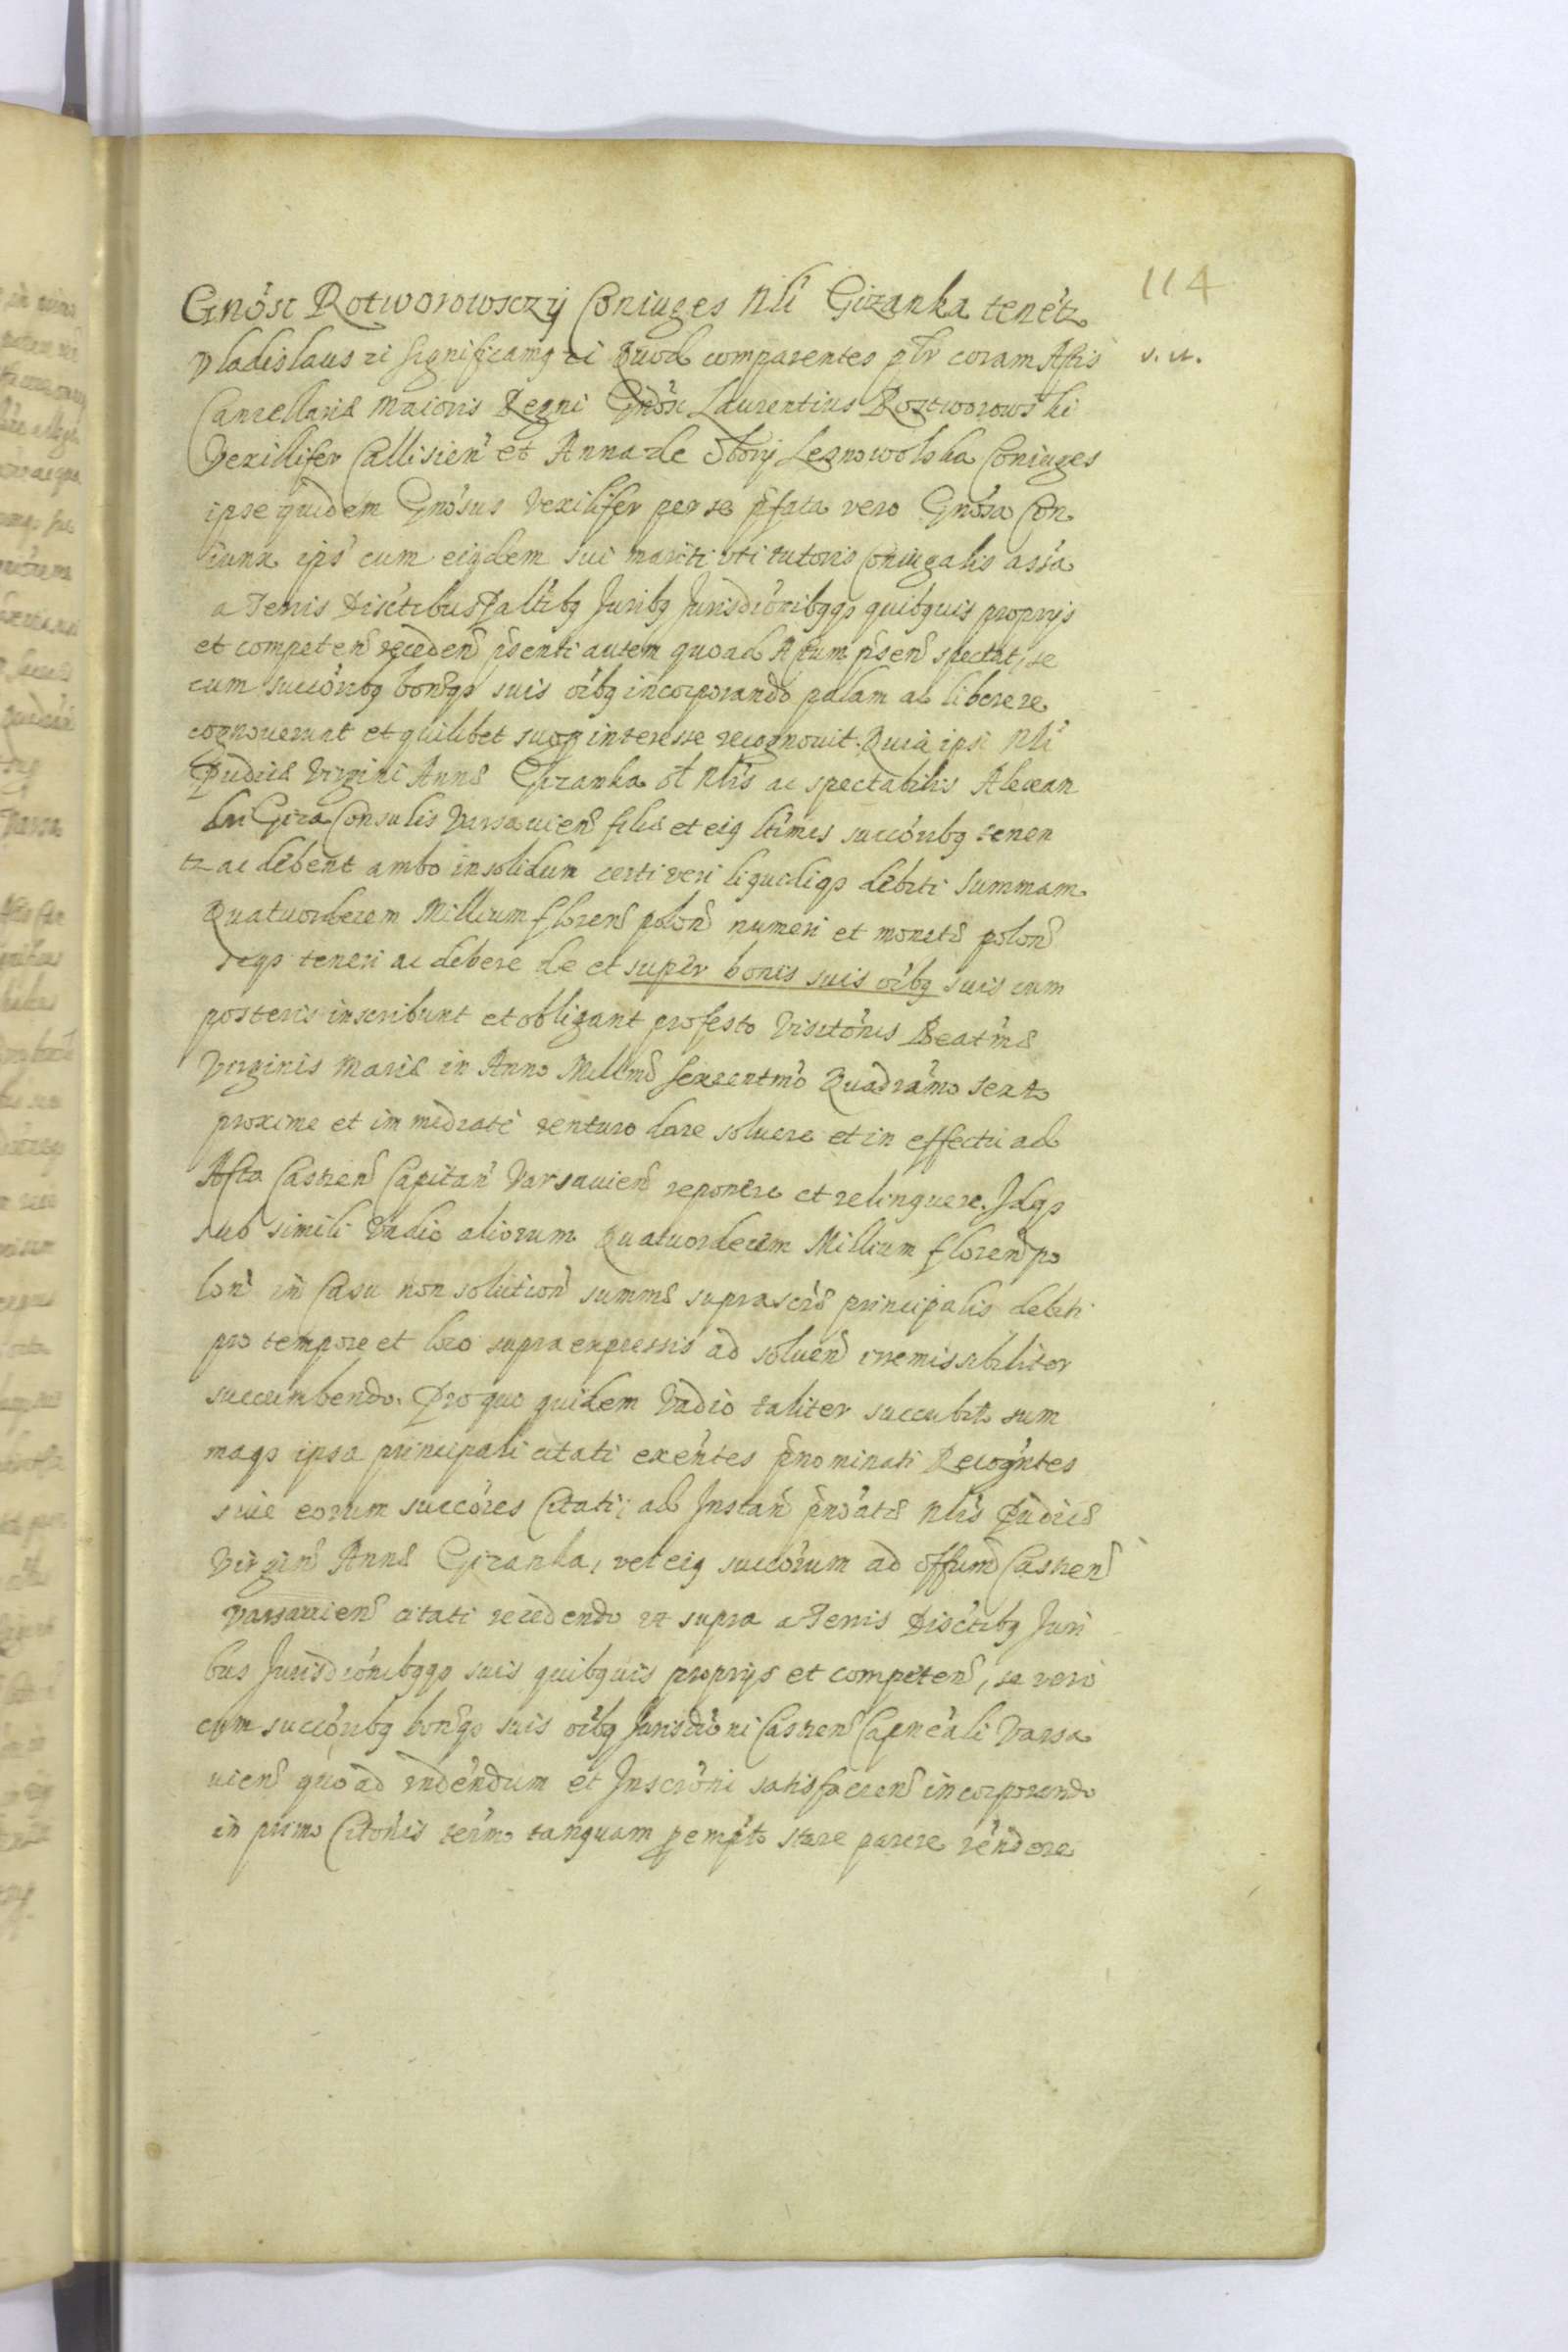 114
Gnosi Rotworowsczÿ Coniuges Nli Gizanka tenetz
v. u.
Vladislaus zi Significamq zi Quod comparentes plr coram Actis
Cancellariæ Maioris Regni Gnosi Laurentius Roztworowski
Vexillifer Callisien et Anna de Oborÿ Leznowolska Coniuges
ipse quidem Gnosus Vexilifer per se pfata vero Gnosa Con
iunx ips cum eiqdem sui mariti uti tutoris Coniugalis assa
a Terris Disctibus Paltibq Juribq Jurisdionibqqs quibquis proprÿs
et competen recedend psenti autem quoad Actum psens spectat, se
cum succoribq bonqs suis oibq incorporando palam ac libere re
cognoverunt et quilibet suor interesse recognovit. Quia ipsi Nli
Pudicæ Virgini Annæ Gizanka ol Nlis ac spectabilis Alexan
dri Giza Consulis Varsavien filiæ et eiq ltimis succoribq tenen
tz ac debent ambo insolidum certi veri liquidiqs debiti summam
Quatuordecem Millium floren polon numeri et monetæ polon
seqs teneri ac debere de et super bonis suis oibq suis cum
posteris inscribunt et obligant pro festo Visitonis Beatmæ
Virginis Mariæ in Anno Millmo Sexcentmo Quadramo sexto
proxime et immediate venturo dare solvere et in effectu ad
Acta Castren Capitan Varsavien reponere et relinquere. Idqs
sub simili Vadio aliorum Quatuordecem Millium floren po
lon in Casu non solution summæ suprascræ principalis debiti
pro tempore et loco supra expressis ad solvend irremissibiliter
succumbendo. Pro quo quidem Vadio taliter succubito sum
maqs ipsa principali citati exentes pnominati Recogntes
sive eorum succores Citati, ad Instan pnoatæ Nlis Pudicæ
Virgin Annæ Gizanka, vel eiq succorum ad Offium Castren
Varsavien citati recedendo ut supra a Terris Disctibq Juri
bus Jurisdionibqqs suis quibquis proprÿs et competen, se vero
cum succoribq bonqs suis oibq Jurisdioni Castren Capneali Varsa
vien quoad rndendum et Inscrioni satisfaciend incorporando
in primo Citonis termo tanquam pempto stare parere rendere